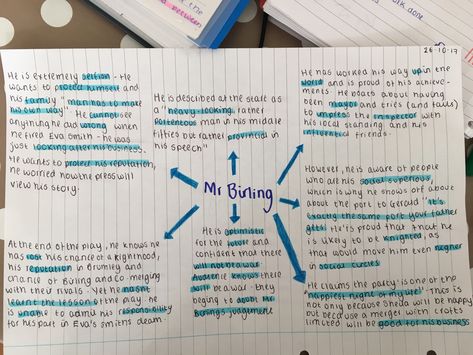 26-10-17
He is extremely selfish - He
wants to protect himself and
his family "man has to make
his own way" He cannot see
anything he did wrong when
he fired Eva Smith - he was
just looking after his business.
He wants to protect his reputation,
he worried how the press will
view his story.
He is described at the start as
a "heavy looking, rather
portentous man in his middle
fifties but rather provincial in
his speech"
He has worked his way up in the
world and is proud of his achieve-
ments. He boasts about having
been mayor and tries (and fails)
to impress the inspector with
his local standing and his
influential friends.
Mr Birling
However, he is aware of people
who are his social superiors,
which is why he shows off about
about the port to Gerald "it's
exactly the same port your father
gets". He's proud that that he
is likely to be knighted, as
that would move him even higher
in social circles
At the end of the play, he knows he
has lost his chance of a knighthood,
his reputation in Brumley and
chance of Birling and Co. merging
with their rivals. Yet he hasn't
learnt the lesson of the play: he
is unable to admit his responsibility
for his part in Eva's smiths death
He is optimistic
for the future and
confident that there
will not be a war
Audience knows there
will be a war - they
begin to doubt Mr
Birling's judgement
He claims the party is one of the
"happiest night of my life" - this is
not only because Sheila will be happy
but because a merger with crofts
limited will be good for his business